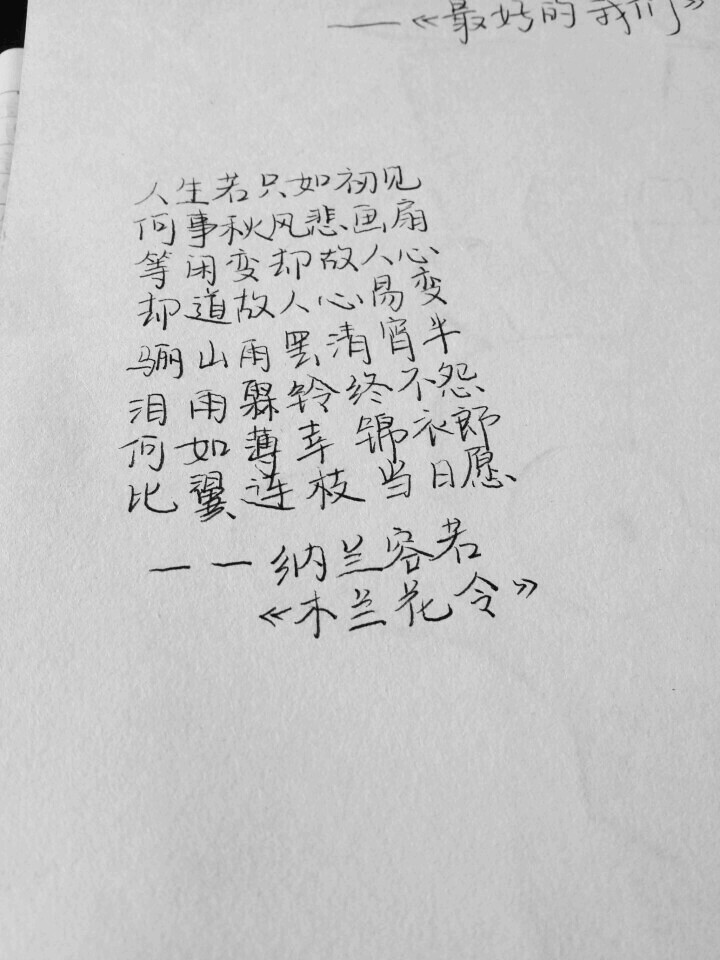 ——《最好的我们》
人生若只如初见
何事秋风悲画扇
等闲变却故人心
却道故人心易变
骊山雨罢清宵半
泪雨铃终不怨
何如薄幸锦衣郎
比翼连枝当日愿
——纳兰容若
《木兰花令》